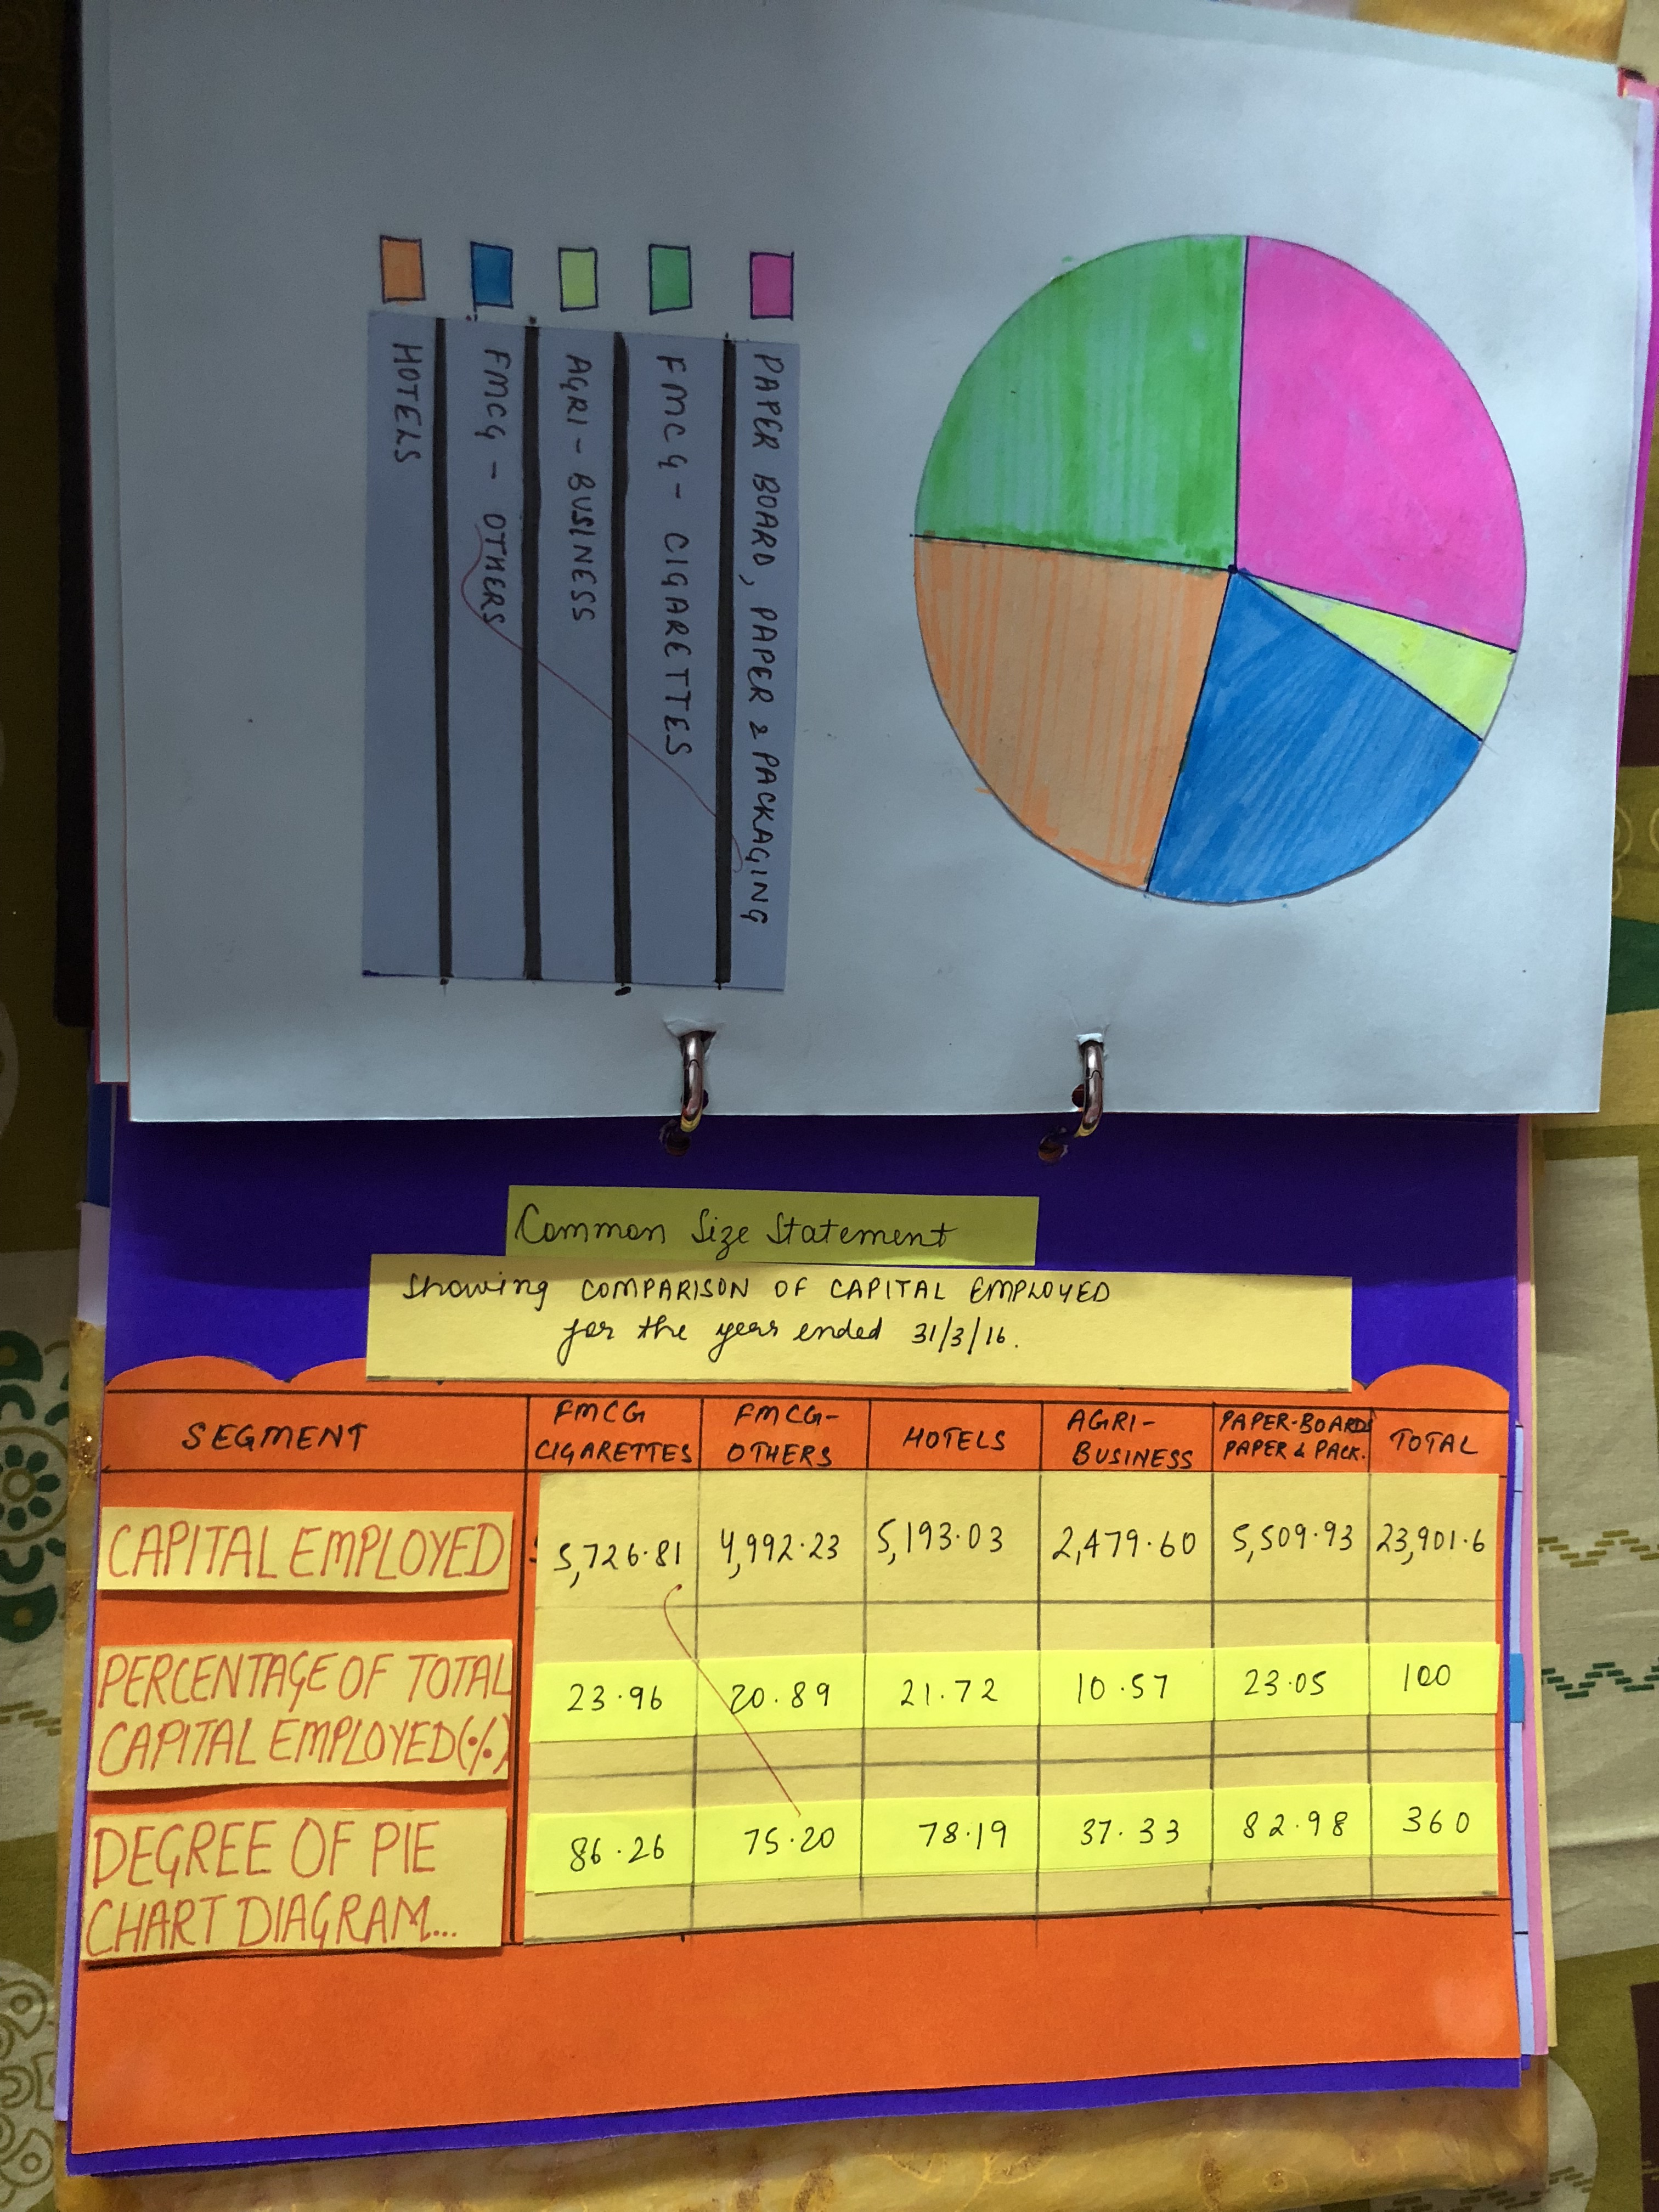 PAPER BOARD, PAPER & PACKAGING
FMCG - CIGARETTES
AGRI - BUSINESS
FMCG - OTHERS
HOTELS
Common Size Statement
Showing COMPARISON OF CAPITAL EMPLOYED
for the year ended 31/3/16.
SEGMENT FMCG CIGARETTES FMCG- OTHERS HOTELS AGRI- BUSINESS PAPER-BOARDS PAPER & PACK. TOTAL
CAPITAL EMPLOYED 5,726.81 4,992.23 5,193.03 2,479.60 5,509.93 23,901.6
PERCENTAGE OF TOTAL
CAPITAL EMPLOYED (%) 23.96 20.89 21.72 10.57 23.05 100
DEGREE OF PIE
CHART DIAGRAM... 86.26 75.20 78.19 37.33 82.98 360